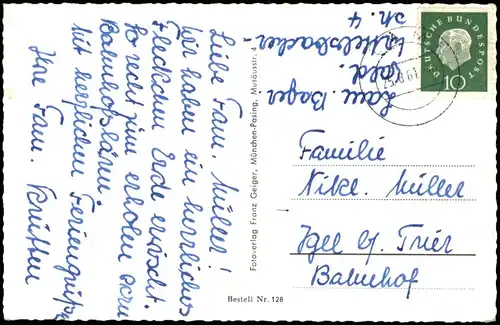 Liebe Fam. Müller!
Wir haben ein herrliches
Fleckchen Erde erwischt.
So recht zum erholen vom
Bahnhofslärm.
Mit herzlichen Feriengrüßen
Ihre Fam.
Fotoverlag Franz Geiger, München-Pasing, Musäusstr. 4
Bestell Nr. 128
Wittelsbacher-
str. 4
DEUTSCHE BUNDESPOST
10
Familie
Nikl. Müller
Igel b/ Trier
Bahnhof